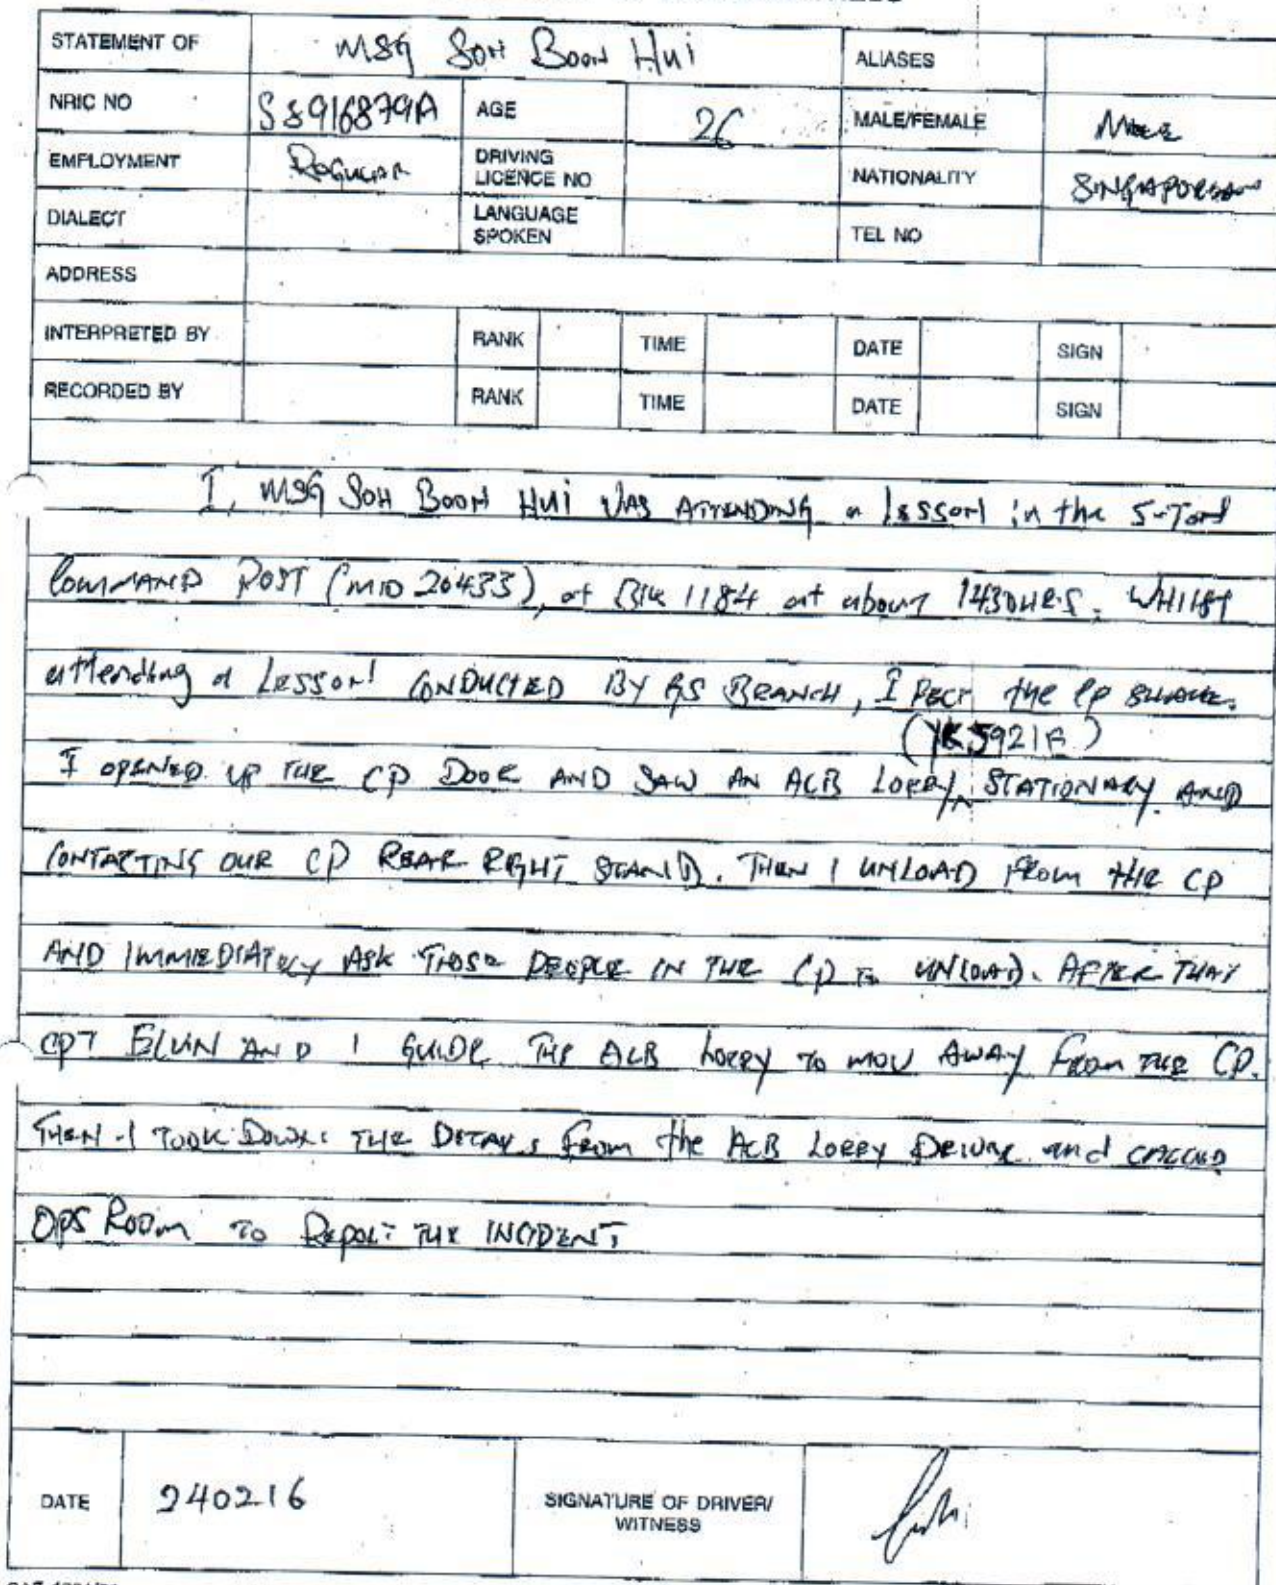 STATEMENT OF MSG SOH BOON HUI ALIASES
NRIC NO S8916879A AGE 26 MALE/FEMALE MALE
EMPLOYMENT REGULAR DRIVING LICENCE NO NATIONALITY SINGAPOREAN
DIALECT LANGUAGE SPOKEN TEL NO
ADDRESS
INTERPRETED BY RANK TIME DATE SIGN
RECORDED BY RANK TIME DATE SIGN
I, MSG SOH BOON HUI WAS ATTENDING a lesson in the 5-Ton
COMMAND POST (MID 20433), at Blk 1184 at about 1430HRS. WHILST
attending a Lesson CONDUCTED BY GS BRANCH, I FELT the CP SHAKE.
(YK5921B)
I OPENED UP THE CP DOOR AND SAW AN ACB LORRY STATIONARY AND
CONTACTING OUR CP REAR RIGHT STAND. THEN I UNLOAD FROM tHE CP
AND IMMEDIATELY ASK THOSE PEOPLE IN THE CP TO UNLOAD. AFTER THAT
CPT ELVIN AND I GUIDE THE ACB LORRY TO MOV AWAY FROM THE CP.
THEN I TOOK DOWN THE DETAILS FROM the ACB LORRY DRIVER and CALLED
OPS ROOM TO REPORT THE INCIDENT
DATE 240216 SIGNATURE OF DRIVER/ WITNESS